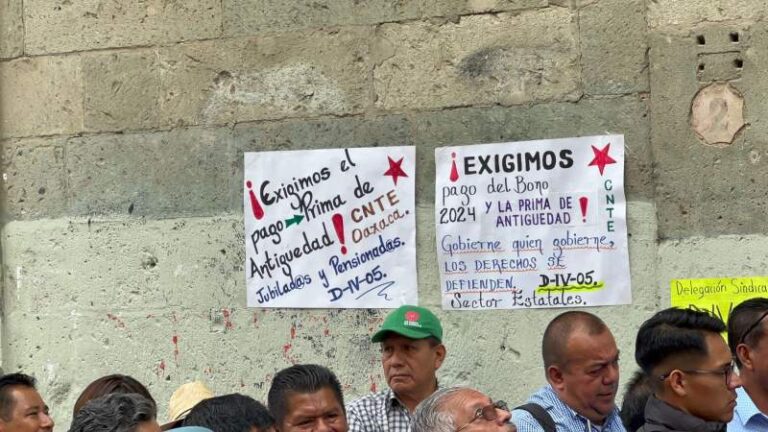 ¡Exigimos el
pago → Prima de
Antiguedad!
CNTE
Oaxaca.
Jubilad@s y Pensionad@s.
D-IV-05.
¡EXIGIMOS
pago del Bono
2024 Y LA PRIMA DE
ANTIGUEDAD!
CNTE
Gobierne quien gobierne,
LOS DERECHOS SE
DEFIENDEN. D-IV-05.
Sector Estatales.
Delegación Sindical